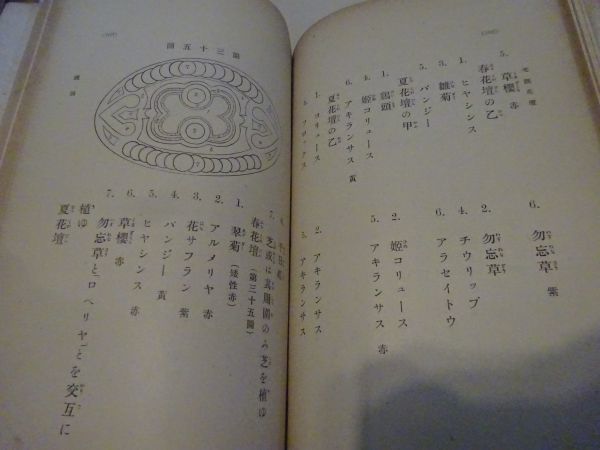 毛氈花壇
5. 草櫻 赤
6. 勿忘草 紫
春花壇の乙
1. ヒヤシンス
2. 勿忘草
3. 雛菊
4. チウリップ
5. パンジー
6. アラセイトウ
夏花壇の甲
1. 鶏頭
2. 姫コリュース
4. 姫コリュース
5. アキランサス 赤
6. アキランサス 黄
夏花壇の乙
1. コリュース
2. アキランサス
3. アキランサス
フロックス
第三十五圖
7. 芝或は其周圍のみ芝を植ゆ
春花壇 (第三十五圖)
1. 翠菊 (矮性赤)
2. アルメリヤ 赤
3. 花サフラン 紫
4. パンジー 黄
5. ヒヤシンス 赤
6. 草櫻 赤
7. 勿忘草と「ロベリヤ」とを交互に
植ゆ
夏花壇